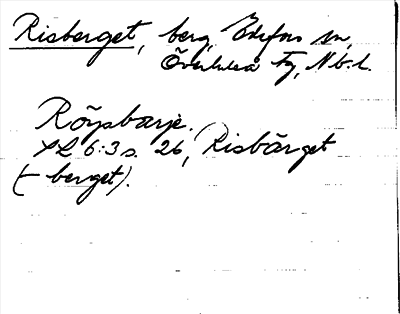 Risberget, berg, Edefors sn,
Överluleå Tg, Nb.l.
Röysbarje.
SL 6:3 s. 26, Risbärget
(- berget).